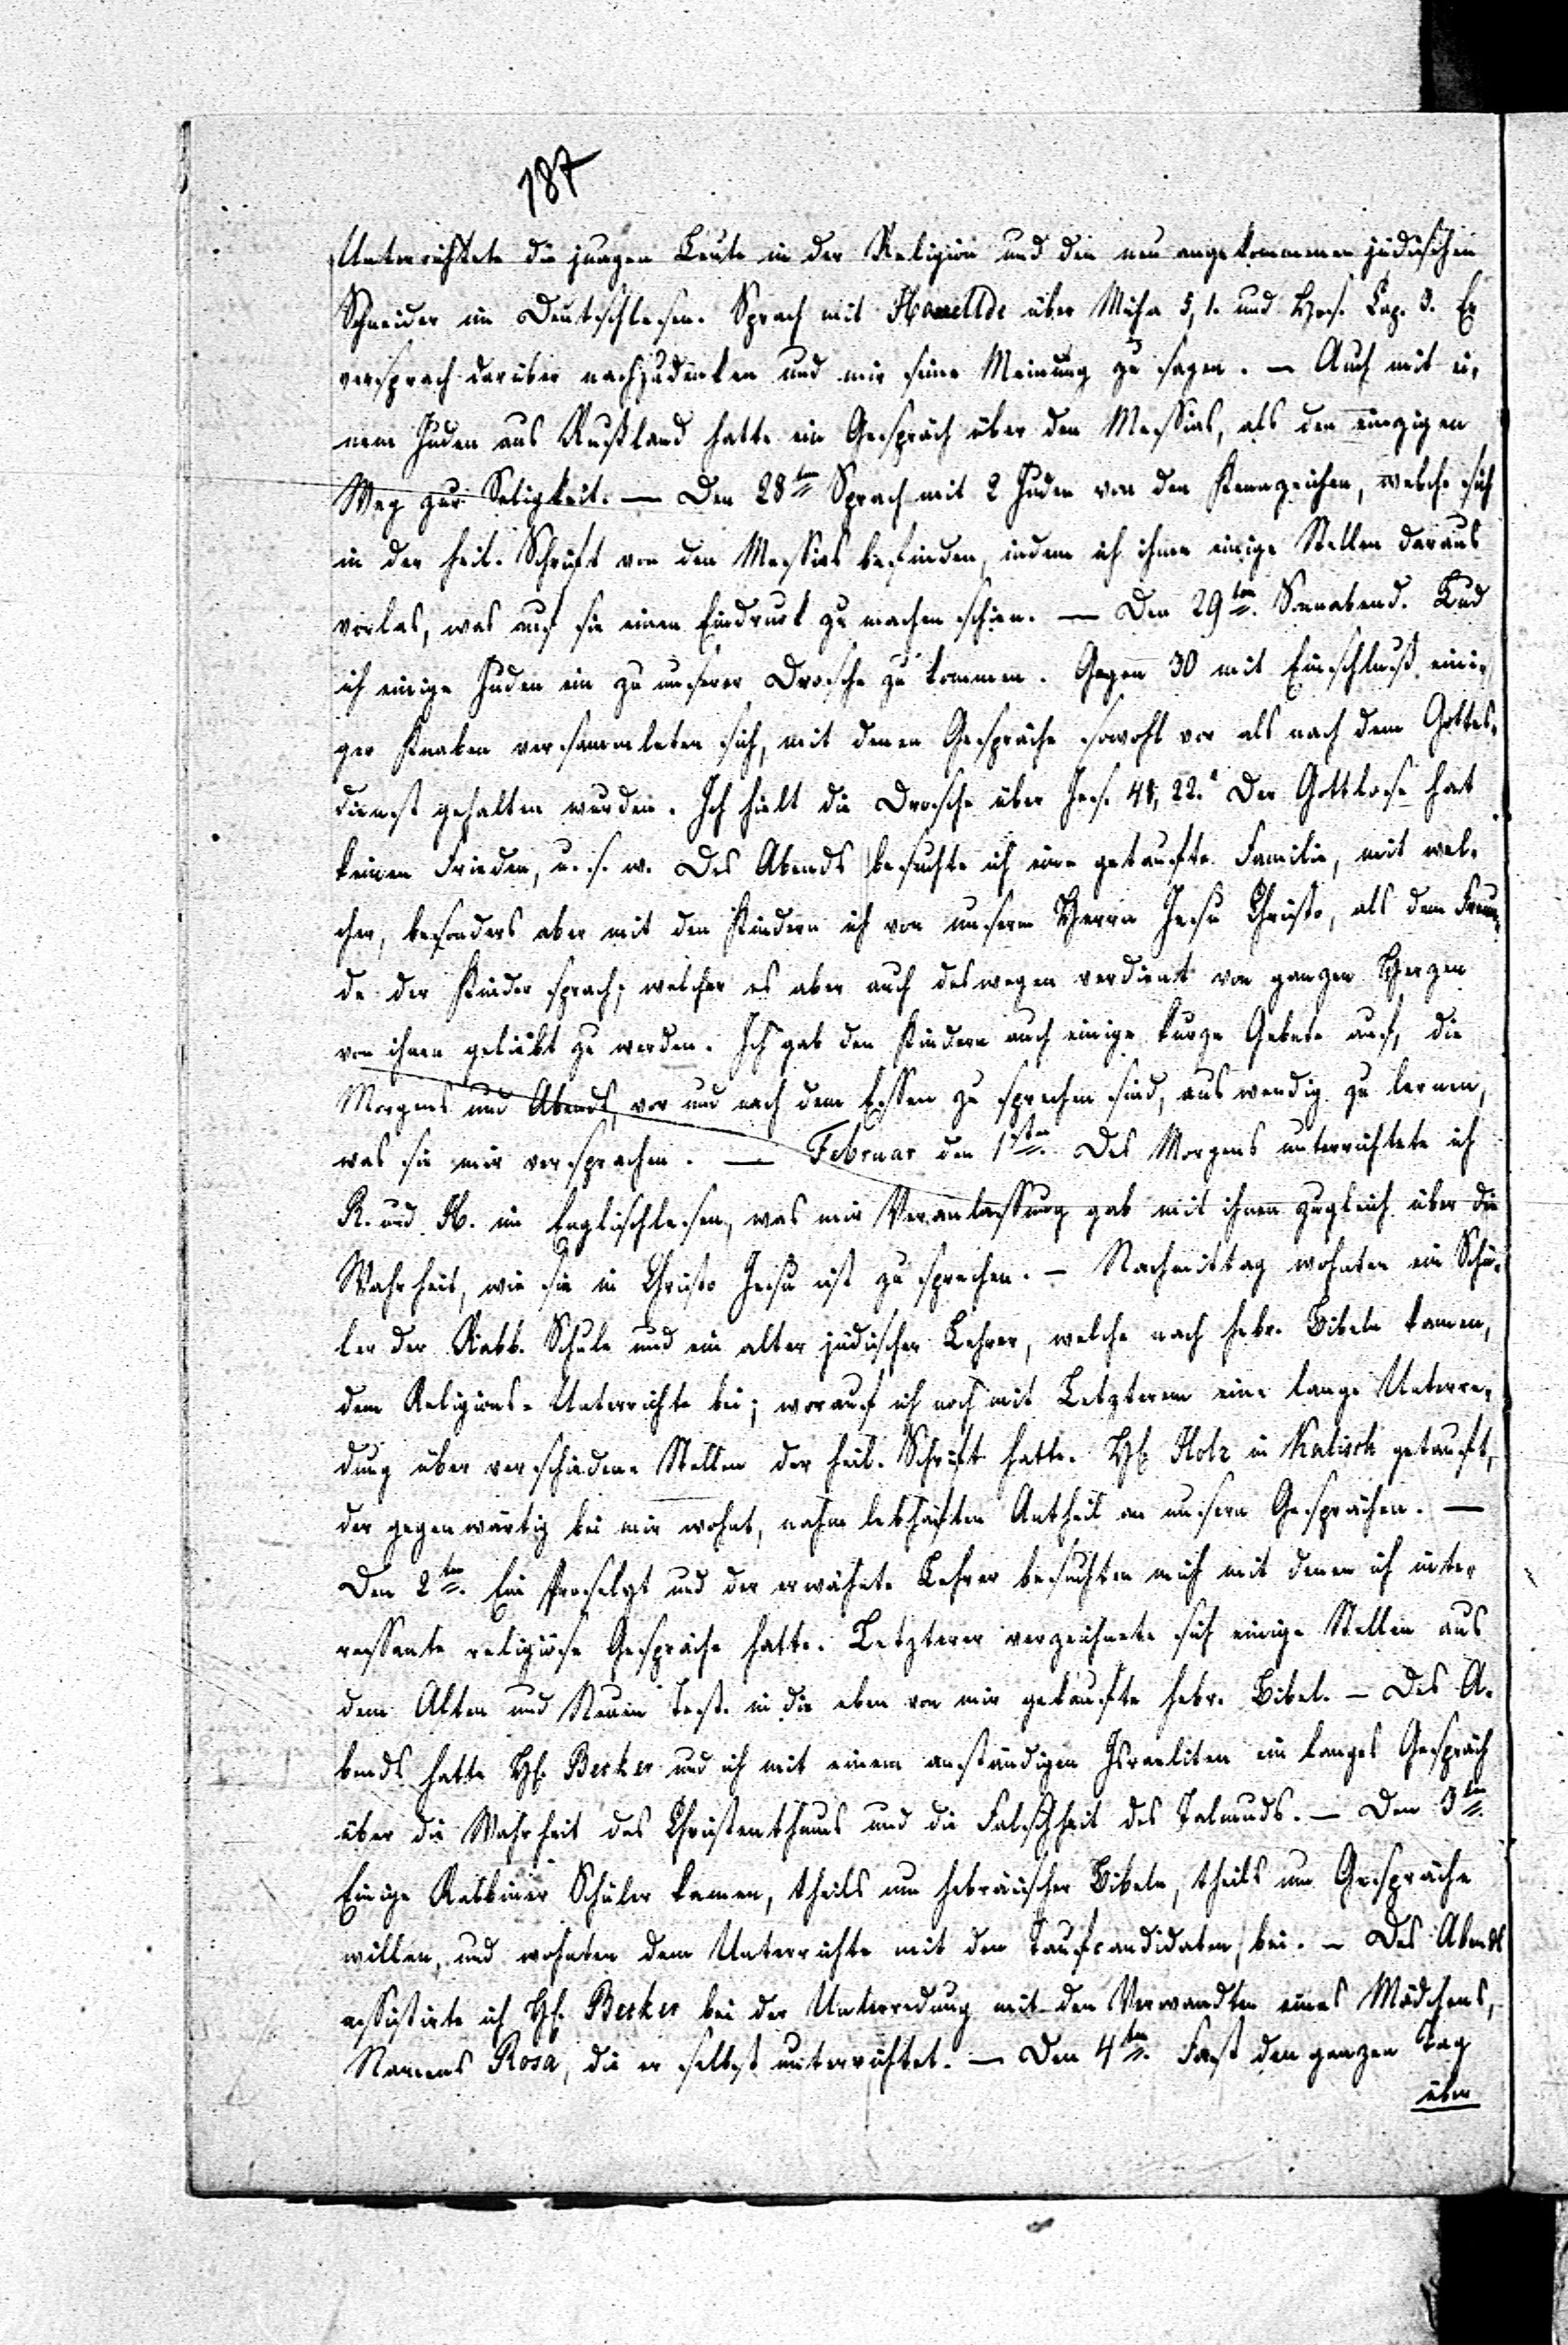 187
Unterrichtete die jungen Leute in der Religion und den neu angekommenen jüdischen
Schneider im Deutschlesen. Sprach mit über Micha 5, 1. und Hos. Cap. 3. Er
versprach darüber nachzudenken und mir seine Meinung zu sagen. — Auch mit ei-
nem Juden aus Rußland hatte ein Gespräch über den Messias, als den einzigen
Weg zur Seligkeit. — Den 28ten Sprach mit 2 Juden von den Kennzeichen, welche sich
in der heil. Schrift von den Messias befinden, indem ich ihnen einige Stellen daraus
vorlas, was auf sie einen Eindruck zu machen schien. — Den 29ten. Sonnabend. Lud
ich einige Juden ein zu unserer Drosche zu kommen. Gegen 30 mit Einschluß eini-
ger Knaben versammleten sich, mit denen Gespräche sowohl vor als nach dem Gottes-
dienst gehalten wurden. Ich hielt die Drosche über Jes. 48, 22. Der Gottlose hat
keinen Frieden, u. s. w. Des Abends besuchte ich eine getaufte Familie, mit wel-
cher, besonders aber mit den Kindern ich von unserm Herrn Jesu Christo, als dem Freun-
de der Kinder sprach; welcher es aber auch deswegen verdient von ganzen Herzen
von ihnen geliebt zu werden. Ich gab den Kindern auch einige kurze Gebete auf, die
Morgens und Abends, vor und nach dem Essen zu sprechen sind, auswendig zu lernen,
was sie mir versprachen. — Februar den 1sten. Des Morgens unterrichtete ich
R. und H. im Englischlesen, was mir Veranlassung gab mit ihnen zugleich über die
Wahrheit, wie sie in Christo Jesu ist zu sprechen. — Nachmittag wohnten ein Schü-
ler der Rabb. Schule und ein alter jüdischer Lehrer, welche nach hebr. Bibeln kamen,
dem Religions-Unterrichte bei; worauf ich noch mit Letzterem eine lange Unterre-
dung über verschiedene Stellen der heil. Schrift hatte. H. Holz in Kalisch getauft,
der gegenwärtig bei mir wohnt, nahm lebhaften Antheil an unsern Gesprächen. —
Den 2ten. Ein Proselyt und der erwähnte Lehrer besuchten mich mit denen ich inte-
ressante religiöse Gespräche hatte. Letzterer verzeichnete sich einige Stellen aus
dem Alten und Neuen Test. in die eben von mir gekaufte hebr. Bibel. — Des A-
bends hatte H. Becker und ich mit einem anständigen Israeliten ein langes Gespräch
über die Wahrheit des Christenthums und die Falschheit des Talmuds. — Den 3ten.
Einige Rabbiner Schüler kamen, theils um hebräischer Bibeln, theils um Gespräche
willen, und wohnten dem Unterrichte mit den Taufcandidaten, bei. — Des Abends
assistirte ich H. Becker bei der Unterredung mit den Verwandten eines Mädchens,
Namens Rosa, die er selbst unterrichtet. — Den 4ten. Fast den ganzen Tag
über